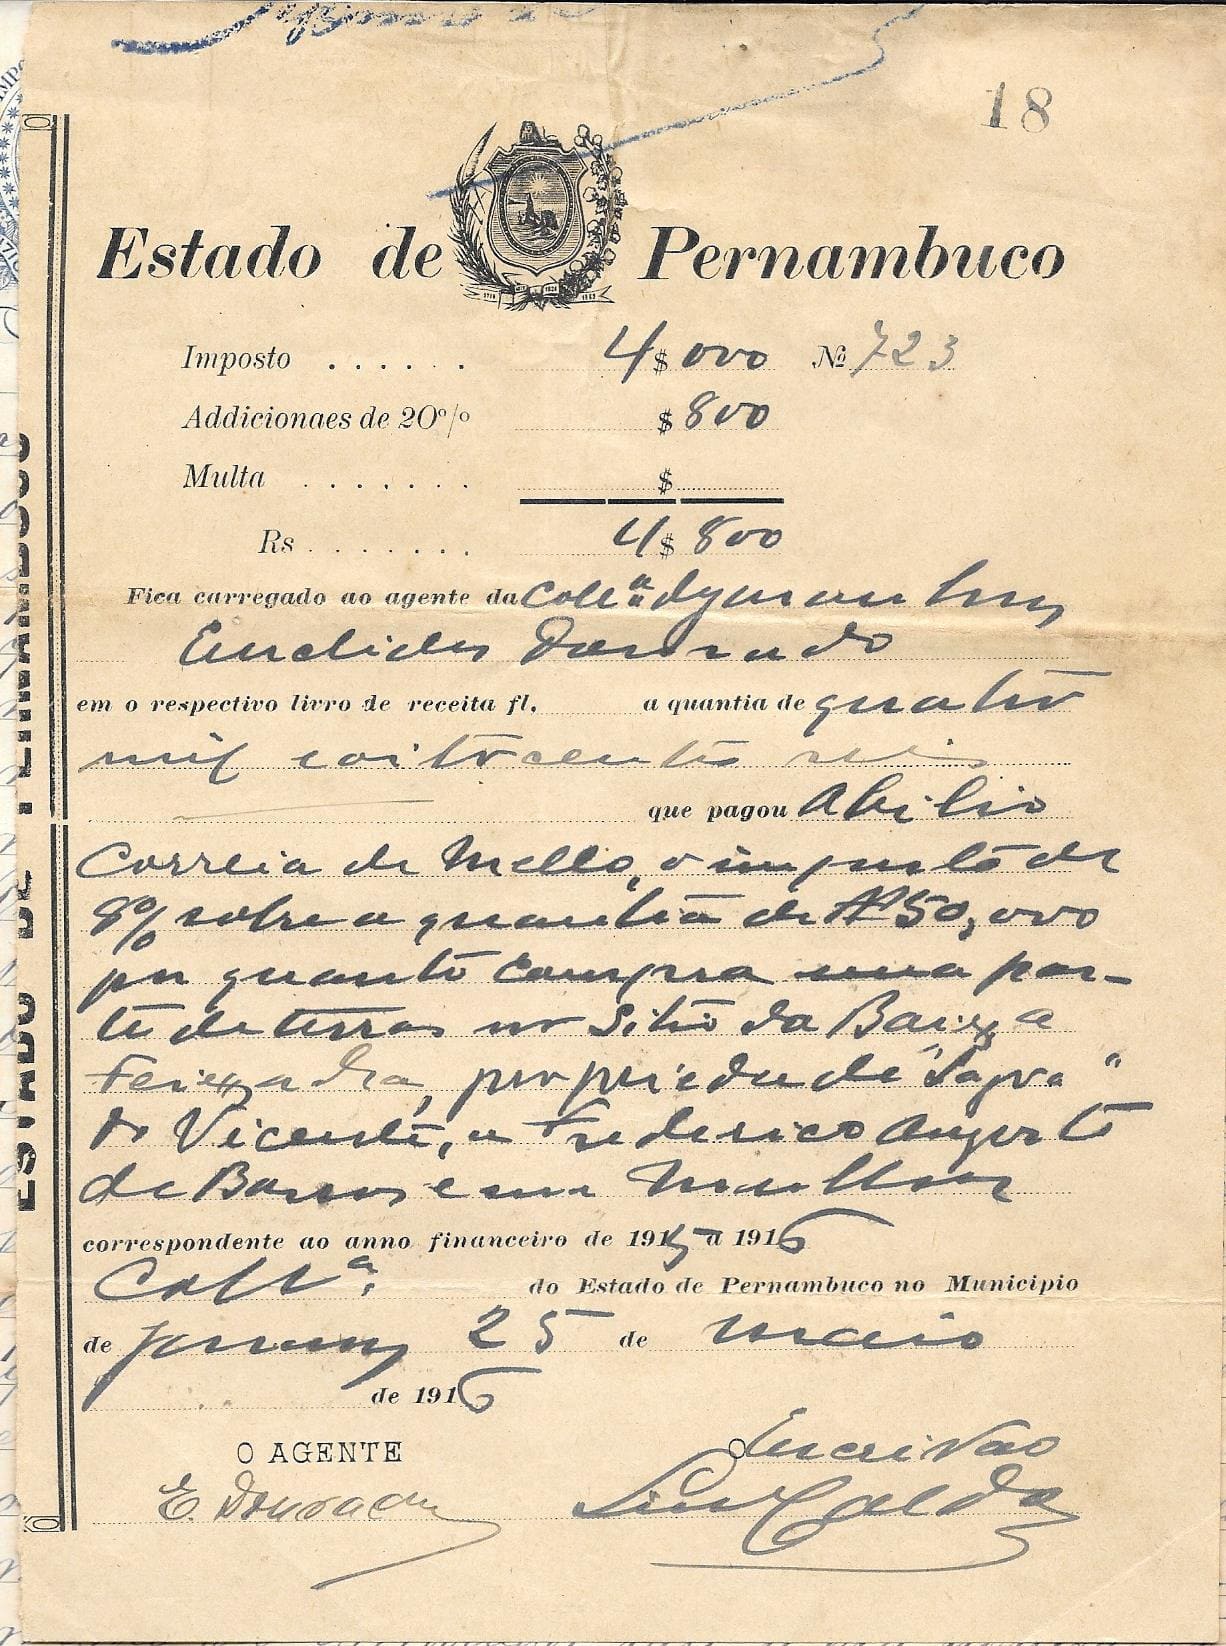 18
Estado de Pernambuco
Imposto . . . . . . 4 $ 000 No 723
Addicionaes de 20 o/o $ 800
Multa . . . . . . . $
Rs . . . . . . . 4 $ 800
Fica carregado ao agente da Coll.a
Euclides Dourado
em o respectivo livro de receita fl. a quantia de quatro
mil e oitocentos reis
que pagou Abilio
Correia de Mello, o imposto de
8% sobre a quantia de 50,000
por quanto compra uma par-
te de terras no Sitio da Baixa
propriedade "Lagoa"
do Vicente, a Frederico Augusto
de Barros e sua Mulher
correspondente ao anno financeiro de 1915 a 1916
Coll.a do Estado de Pernambuco no Municipio
de 25 de Maio
de 1916
O AGENTE O Escrivão
E. Dourado Caldas
ESTADO DE PERNAMBUCO